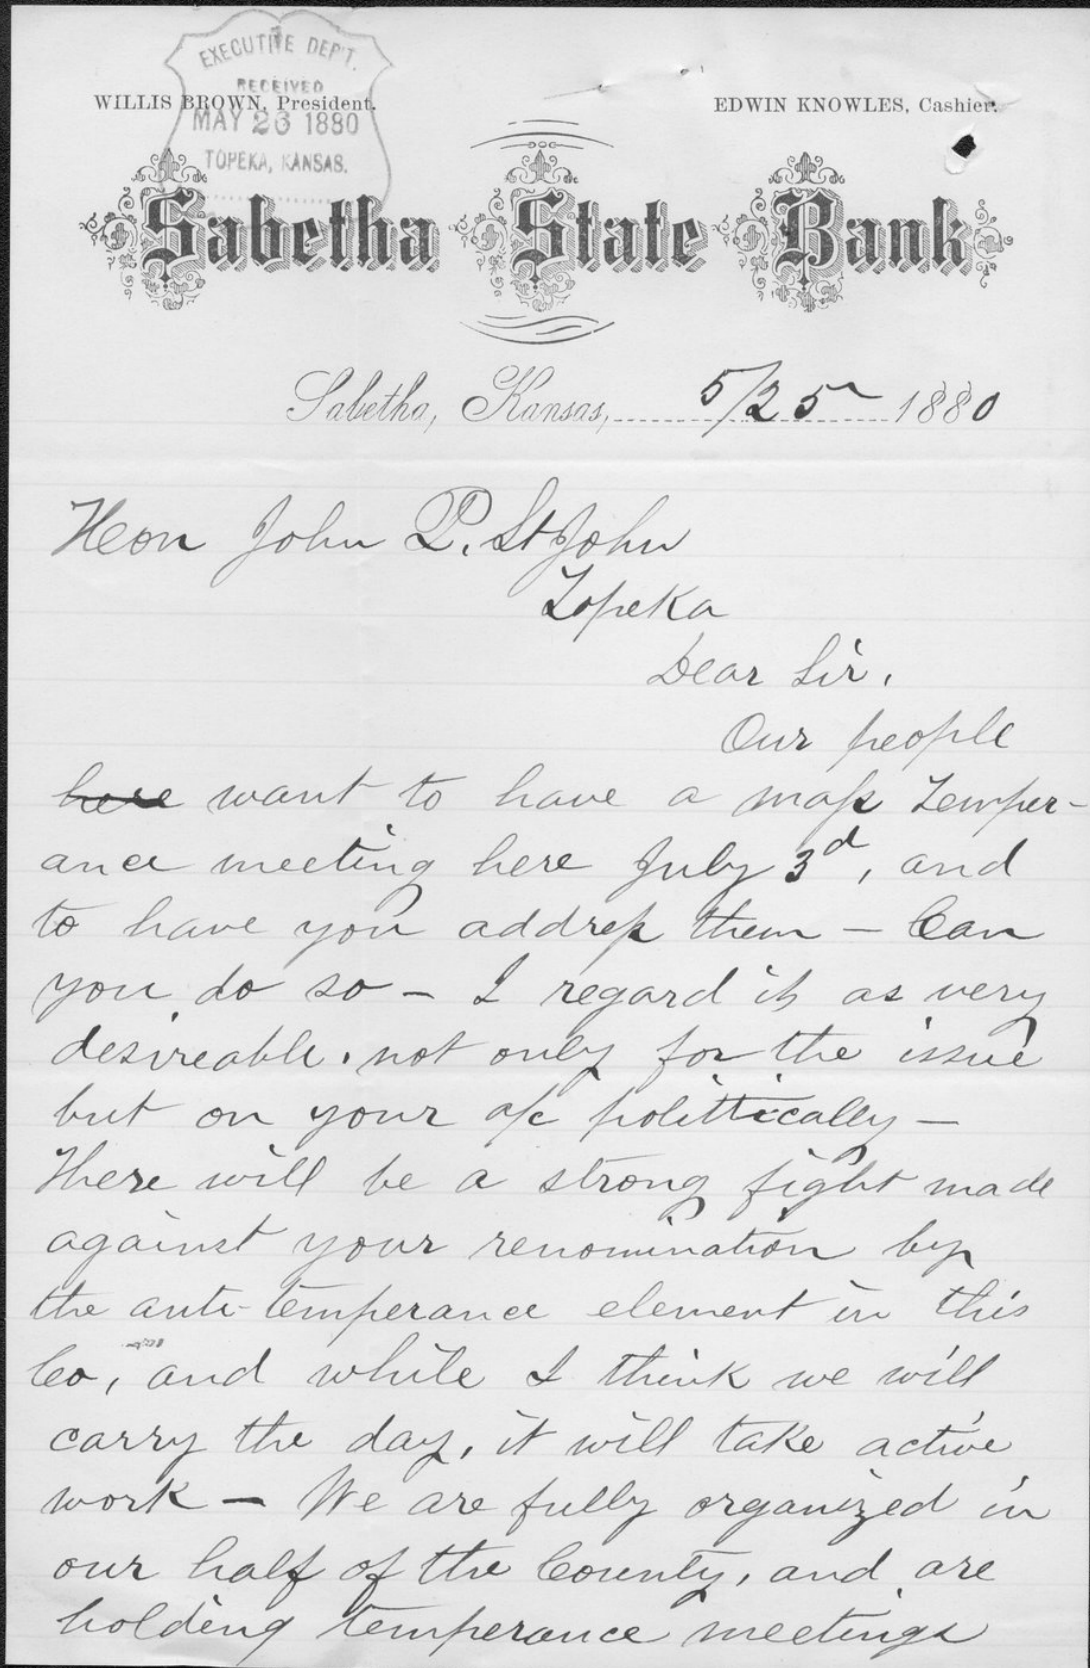 EXECUTIVE DEP'T.
RECEIVED
WILLIS BROWN, President.
EDWIN KNOWLES, Cashier.
MAY 26 1880
TOPEKA, KANSAS.
Sabetha State Bank
Sabetha, Kansas, 5/25 1880
Hon John P. St John
Topeka
Dear Sir.
Our people
here want to have a mass Temper-
ance meeting here July 3d, and
to have you address them — Can
you do so — I regard it as very
desireable. not only for the issue
but on your a/c polittically —
There will be a strong fight made
against your renomination by
the anti-temperance element in this
Co, and while I think we will
carry the day, it will take active
work — We are fully organized in
our half of the County, and are
holding temperance meetings